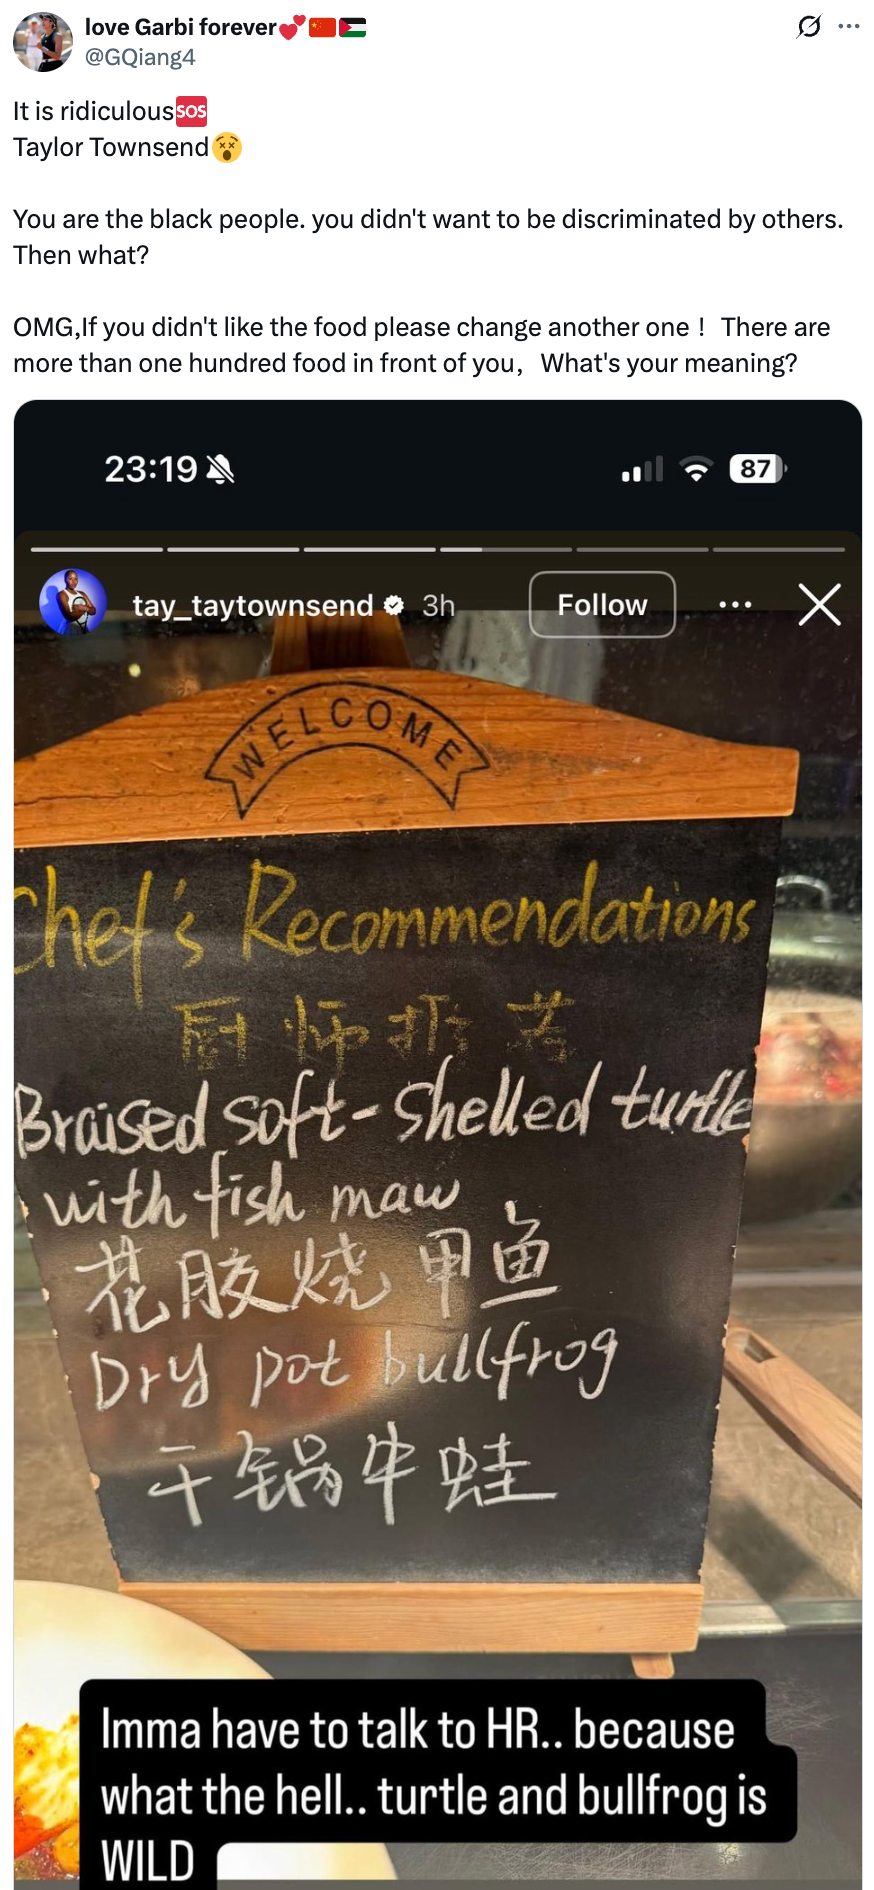 love Garbi forever💕🇨🇳🇵🇸
@GQiang4
It is ridiculous🆘
Taylor Townsend😵
You are the black people. you didn't want to be discriminated by others.
Then what?
OMG,If you didn't like the food please change another one！ There are
more than one hundred food in front of you， What's your meaning?
23:19
87
tay_taytownsend 3h
Follow
WELCOME
Chef's Recommendations
厨师推荐
Braised soft-shelled turtle
with fish maw
花胶烧甲鱼
Dry pot bullfrog
干锅牛蛙
Imma have to talk to HR.. because
what the hell.. turtle and bullfrog is
WILD